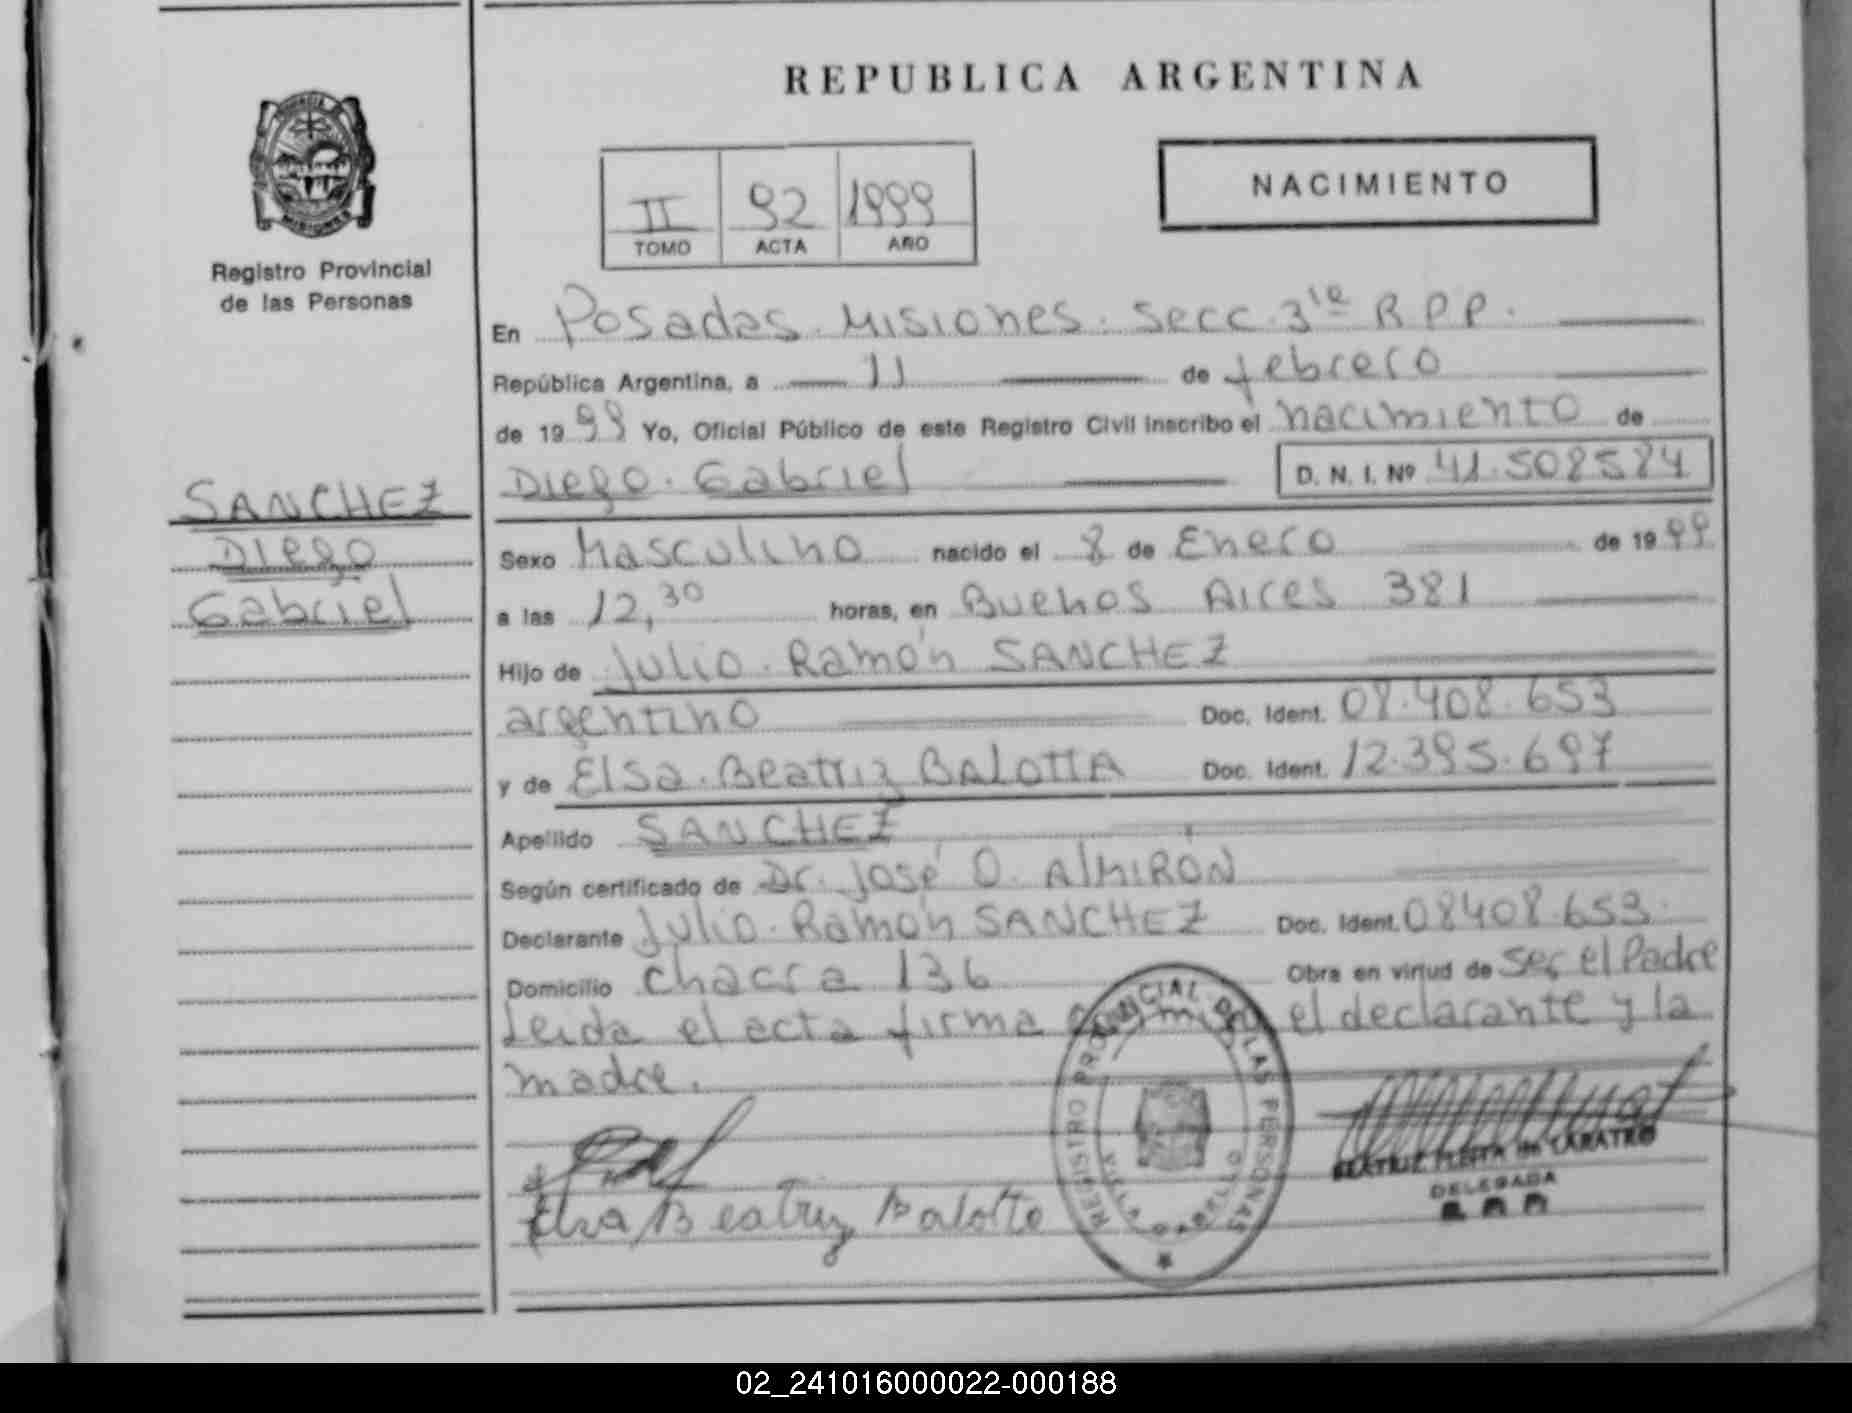 REPUBLICA ARGENTINA
NACIMIENTO
II 92 1999
TOMO ACTA AÑO
Registro Provincial
de las Personas
SANCHEZ
Diego
Gabriel
En Posadas. Misiones. Secc. 3ra R.P.P.
República Argentina, a 11 de febrero
de 1999 Yo, Oficial Público de este Registro Civil inscribo el nacimiento de
Diego. Gabriel D. N. I. Nº 41.508584
Sexo Masculino nacido el 8 de Enero de 1999
a las 12,30 horas, en Buenos Aires 381
Hijo de Julio. Ramón SANCHEZ
argentino Doc. Ident. 08.408.653
y de Elsa. Beatriz BALOTTA Doc. Ident. 12.395.697
Apellido SANCHEZ
Según certificado de Dr. José O. AlMIRÓN
Declarante Julio. Ramón SANCHEZ Doc. Ident. 08408.653.
Domicilio chacra 136 Obra en virtud de ser el Padre
Leida el acta firma el declarante y la
madre.
REGISTRO PROVINCIAL DE LAS PERSONAS
Elsa Beatriz Balotta
BEATRIZ
DELEGADA
02_241016000022-000188